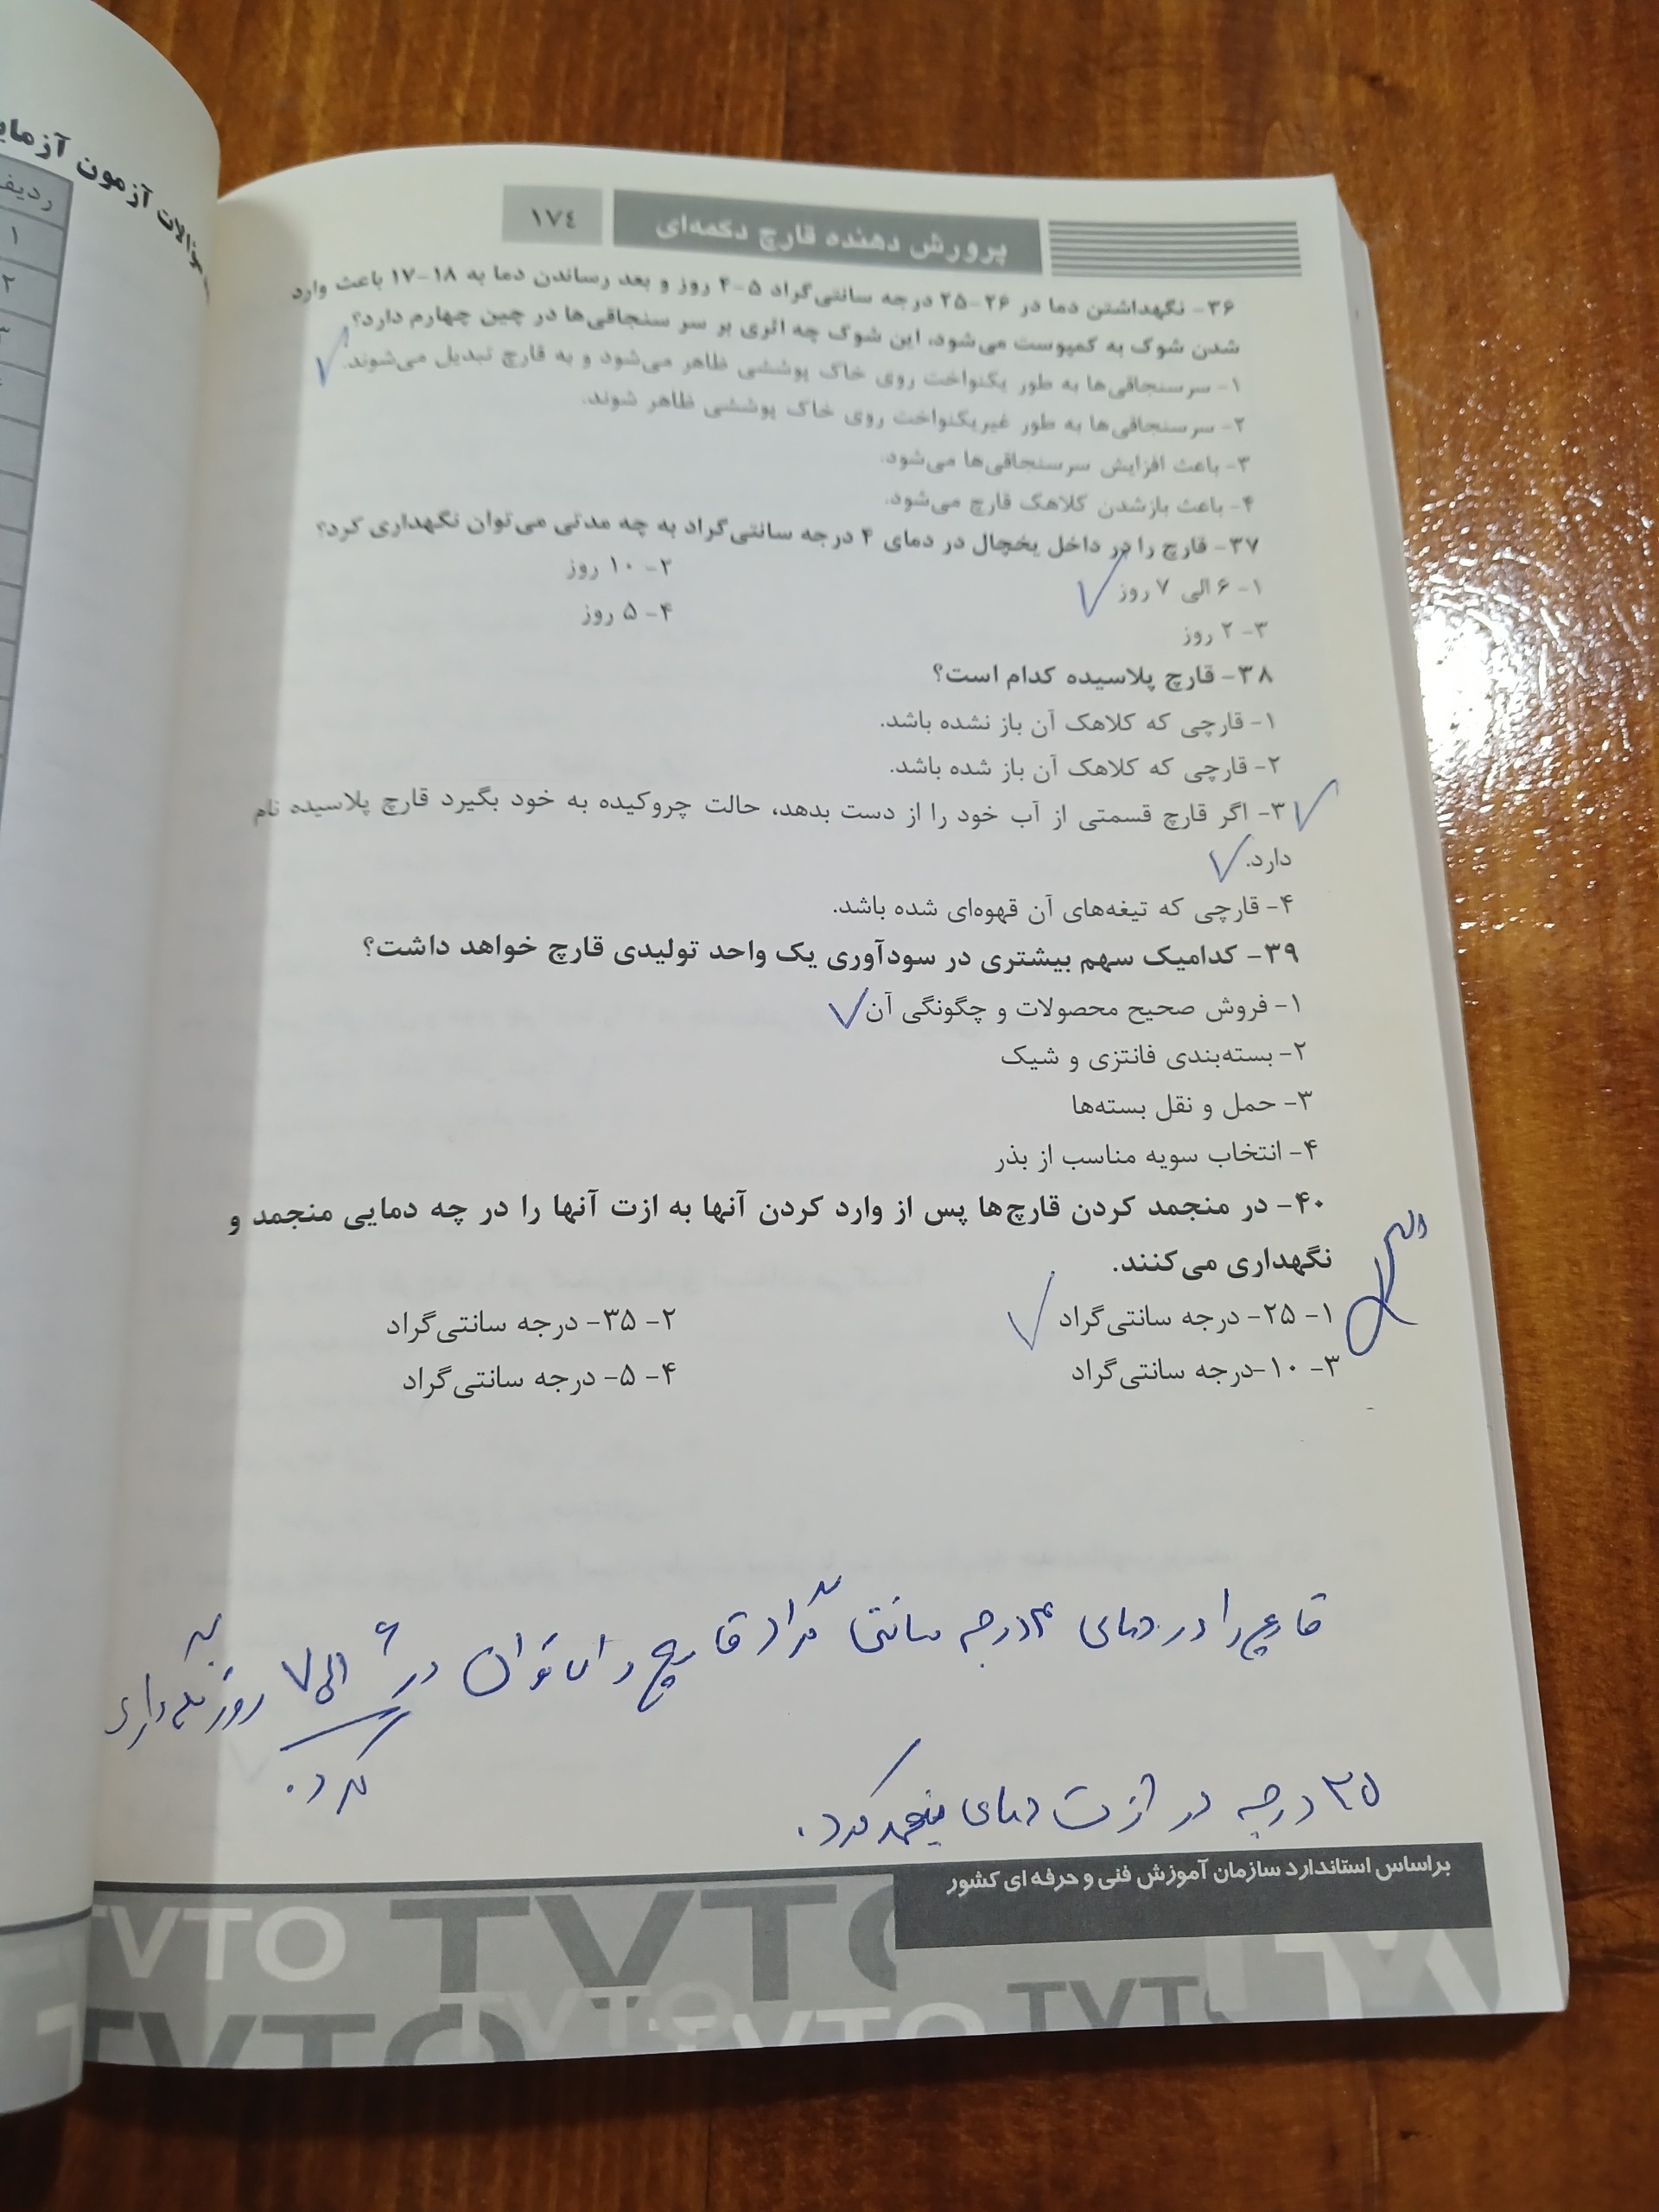 سوالات آزمون آزمای
ردیف
۱
۲
۳
پرورش دهنده قارچ دکمه‌ای
۱۷٤
۳۶- نگهداشتن دما در ۲۶-۲۵ درجه سانتی‌گراد ۵-۴ روز و بعد رساندن دما به ۱۸-۱۷ باعث وارد
شدن شوک به کمپوست می‌شود، این شوک چه اثری بر سر سنجاقی‌ها در چین چهارم دارد؟
۱- سرسنجاقی‌ها به طور یکنواخت روی خاک پوششی ظاهر می‌شود و به قارچ تبدیل می‌شوند.
۲- سرسنجاقی‌ها به طور غیریکنواخت روی خاک پوششی ظاهر شوند.
۳- باعث افزایش سرسنجاقی‌ها می‌شود.
۴- باعث بازشدن کلاهک قارچ می‌شود.
۳۷- قارچ را در داخل یخچال در دمای ۴ درجه سانتی‌گراد به چه مدتی می‌توان نگهداری کرد؟
۱- ۶ الی ۷ روز
۲- ۱۰ روز
۳- ۲ روز
۴- ۵ روز
۳۸- قارچ پلاسیده کدام است؟
۱- قارچی که کلاهک آن باز نشده باشد.
۲- قارچی که کلاهک آن باز شده باشد.
۳- اگر قارچ قسمتی از آب خود را از دست بدهد، حالت چروکیده به خود بگیرد قارچ پلاسیده نام
دارد.
۴- قارچی که تیغه‌های آن قهوه‌ای شده باشد.
۳۹- کدامیک سهم بیشتری در سودآوری یک واحد تولیدی قارچ خواهد داشت؟
۱- فروش صحیح محصولات و چگونگی آن
۲- بسته‌بندی فانتزی و شیک
۳- حمل و نقل بسته‌ها
۴- انتخاب سویه مناسب از بذر
۴۰- در منجمد کردن قارچ‌ها پس از وارد کردن آنها به ازت آنها را در چه دمایی منجمد و
نگهداری می‌کنند.
۱- ۲۵- درجه سانتی‌گراد
۲- ۳۵- درجه سانتی‌گراد
۳- ۱۰-درجه سانتی‌گراد
۴- ۵- درجه سانتی‌گراد
قارچ را در دمای ۴ درجه سانتی گراد قارچ را می توان در ۶ الی ۷ روز نگهداری
کرد.
۲۵ درجه در ازت دمای منجمد کرد.
براساس استاندارد سازمان آموزش فنی و حرفه ای کشور
TVTO TVTO
TVTO TVTO TVTO TVTO